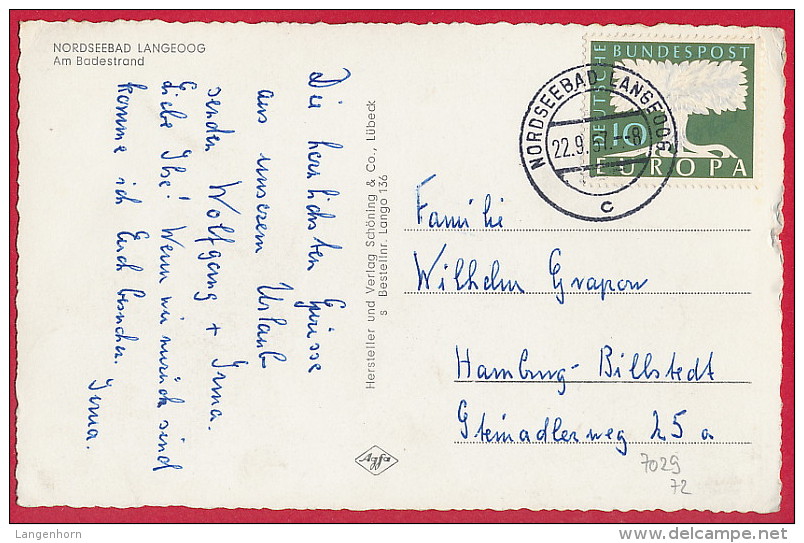 NORDSEEBAD LANGEOOG
Am Badestrand
Die herzlichsten Grüsse
aus unserem Urlaub
senden Wolfgang + Irma.
Liebe Ilse! Wenn wir zurück sind
komme ich Euch besuchen.
Irma.
Hersteller und Verlag Schöning & Co., Lübeck
s Bestellnr. Lango 136
Agfa
DEUTSCHE BUNDESPOST
10
EUROPA
NORDSEEBAD LANGEOOG
22.9.57.-8
c
Familie
Wilhelm Grapow
Hamburg-Billstedt
Steinadlerweg 25 a
7029
72
Langenhorn
www.delcampe.net